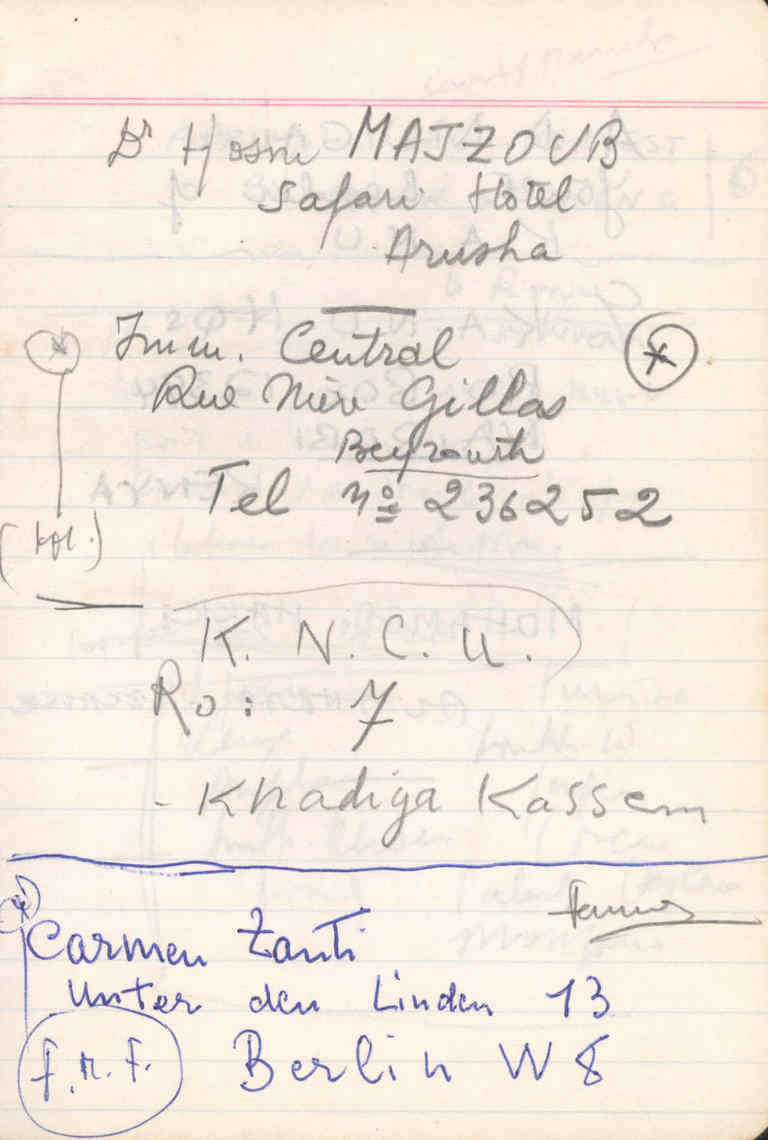 Dr Hosni MAJZOUB
Safari Hotel
Arusha
Imm. Central
Rue Mère Gillas
Beyrouth
Tel Nº 236252
K. N. C. U.
Ro: 7
- Khadiga Kassem
Carmen Zanti
Unter den Linden 13
Berlin W 8